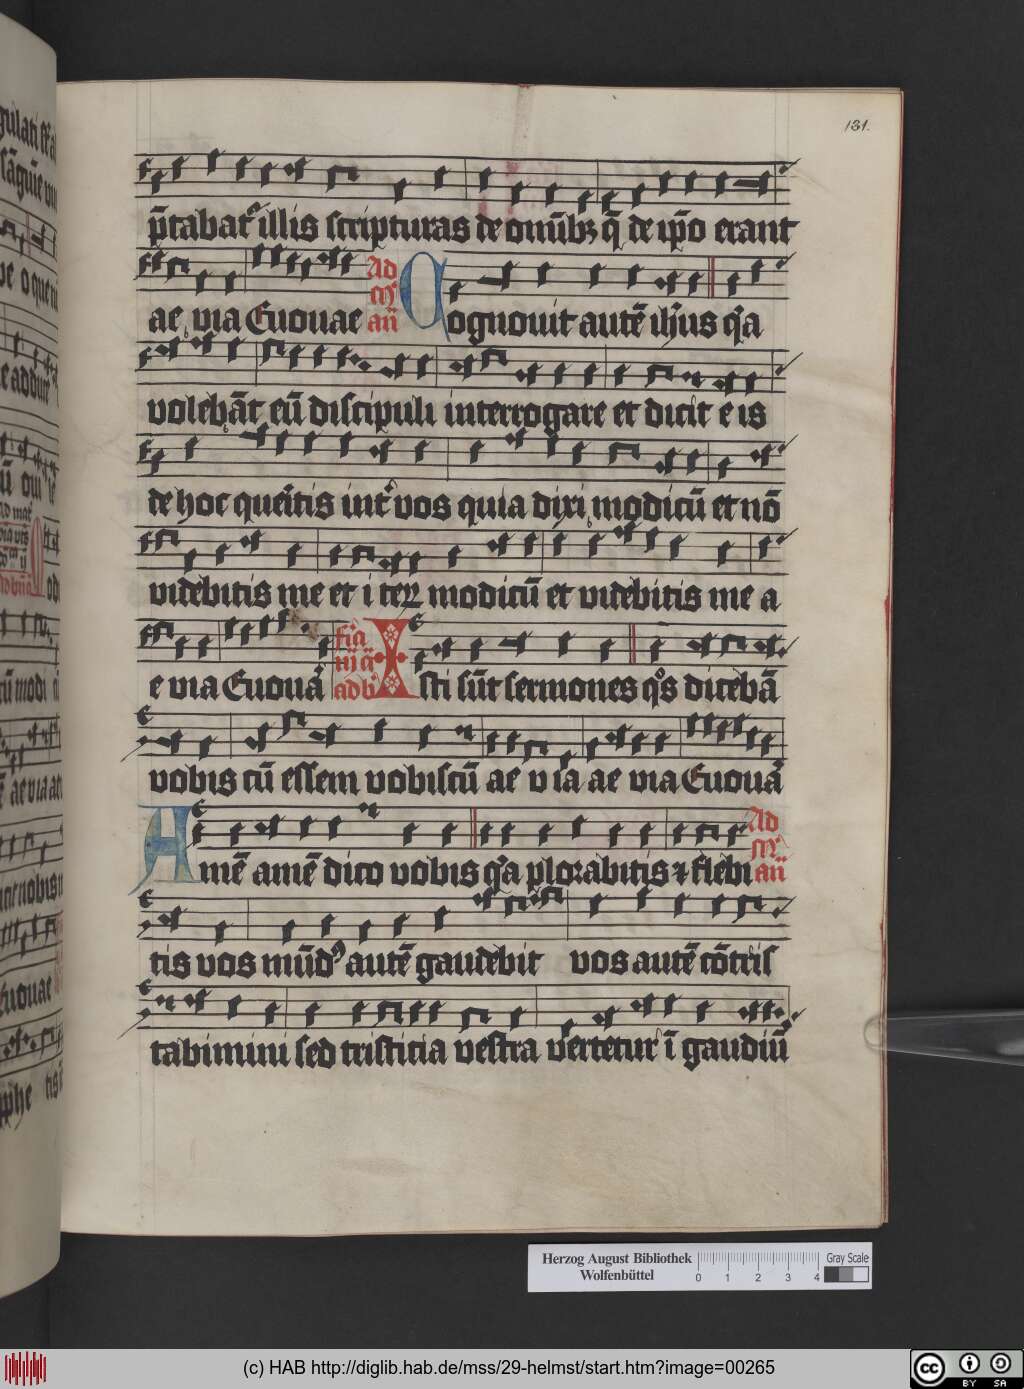 131.
p̄tabat᷒ illis scripturas de om̄ibꝫ q̄ de ip̄o erant
ae via Euouae Ad cr᷒ an̄ Cognouit autē ih̄us q᷒a
volebāt eū discipuli interrogare et dicit eis
de hoc querītis int᷒ vos quia dixi modicū et nō
videbitis me et iteꝝ modicū et videbitis me a
e via Euouā Isti sūt sermones q᷒s dicebā
vobis cū essem vobiscū ae via ae via Euouā
Amē amē dico vobis q᷒a plorabitis ⁊ flebi Ad cr᷒ an̄
tis vos mūd᷒ autē gaudebit vos autē cōtris
tabimini sed tristicia vestra vertetur ī gaudiū
Herzog August Bibliothek
Wolfenbüttel
Gray Scale
0 1 2 3 4
(c) HAB http://diglib.hab.de/mss/29-helmst/start.htm?image=00265
cc BY SA